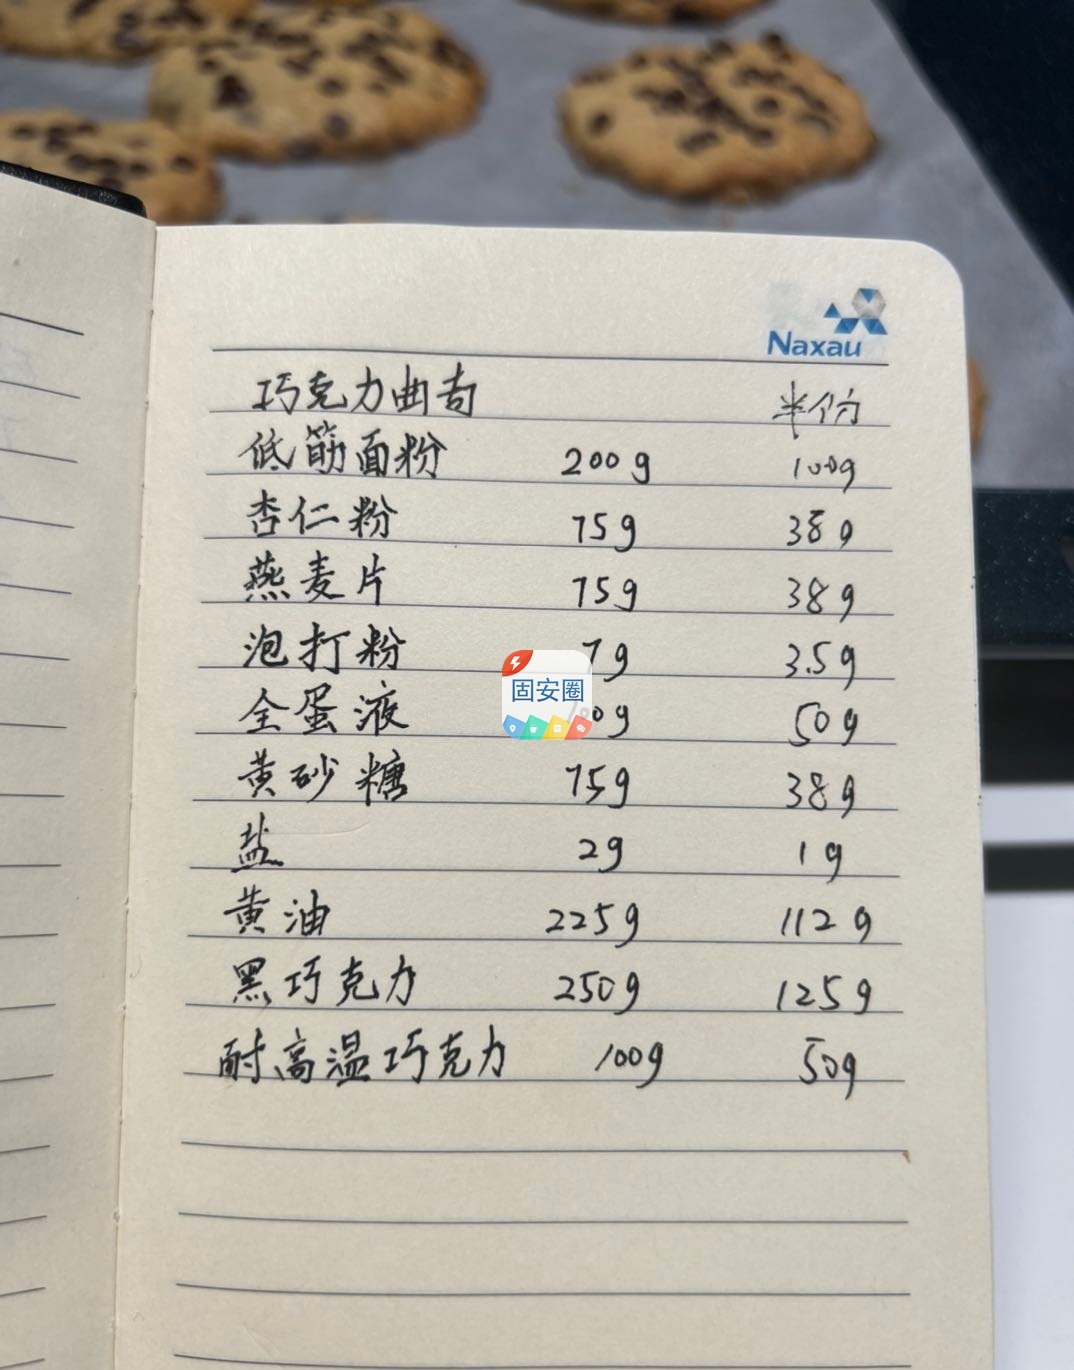 Naxau
巧克力曲奇 半份
低筋面粉 200g 100g
杏仁粉 75g 38g
燕麦片 75g 38g
泡打粉 7g 3.5g
固安圈
全蛋液 100g 50g
黄砂糖 75g 38g
盐 2g 1g
黄油 225g 112g
黑巧克力 250g 125g
耐高温巧克力 100g 50g